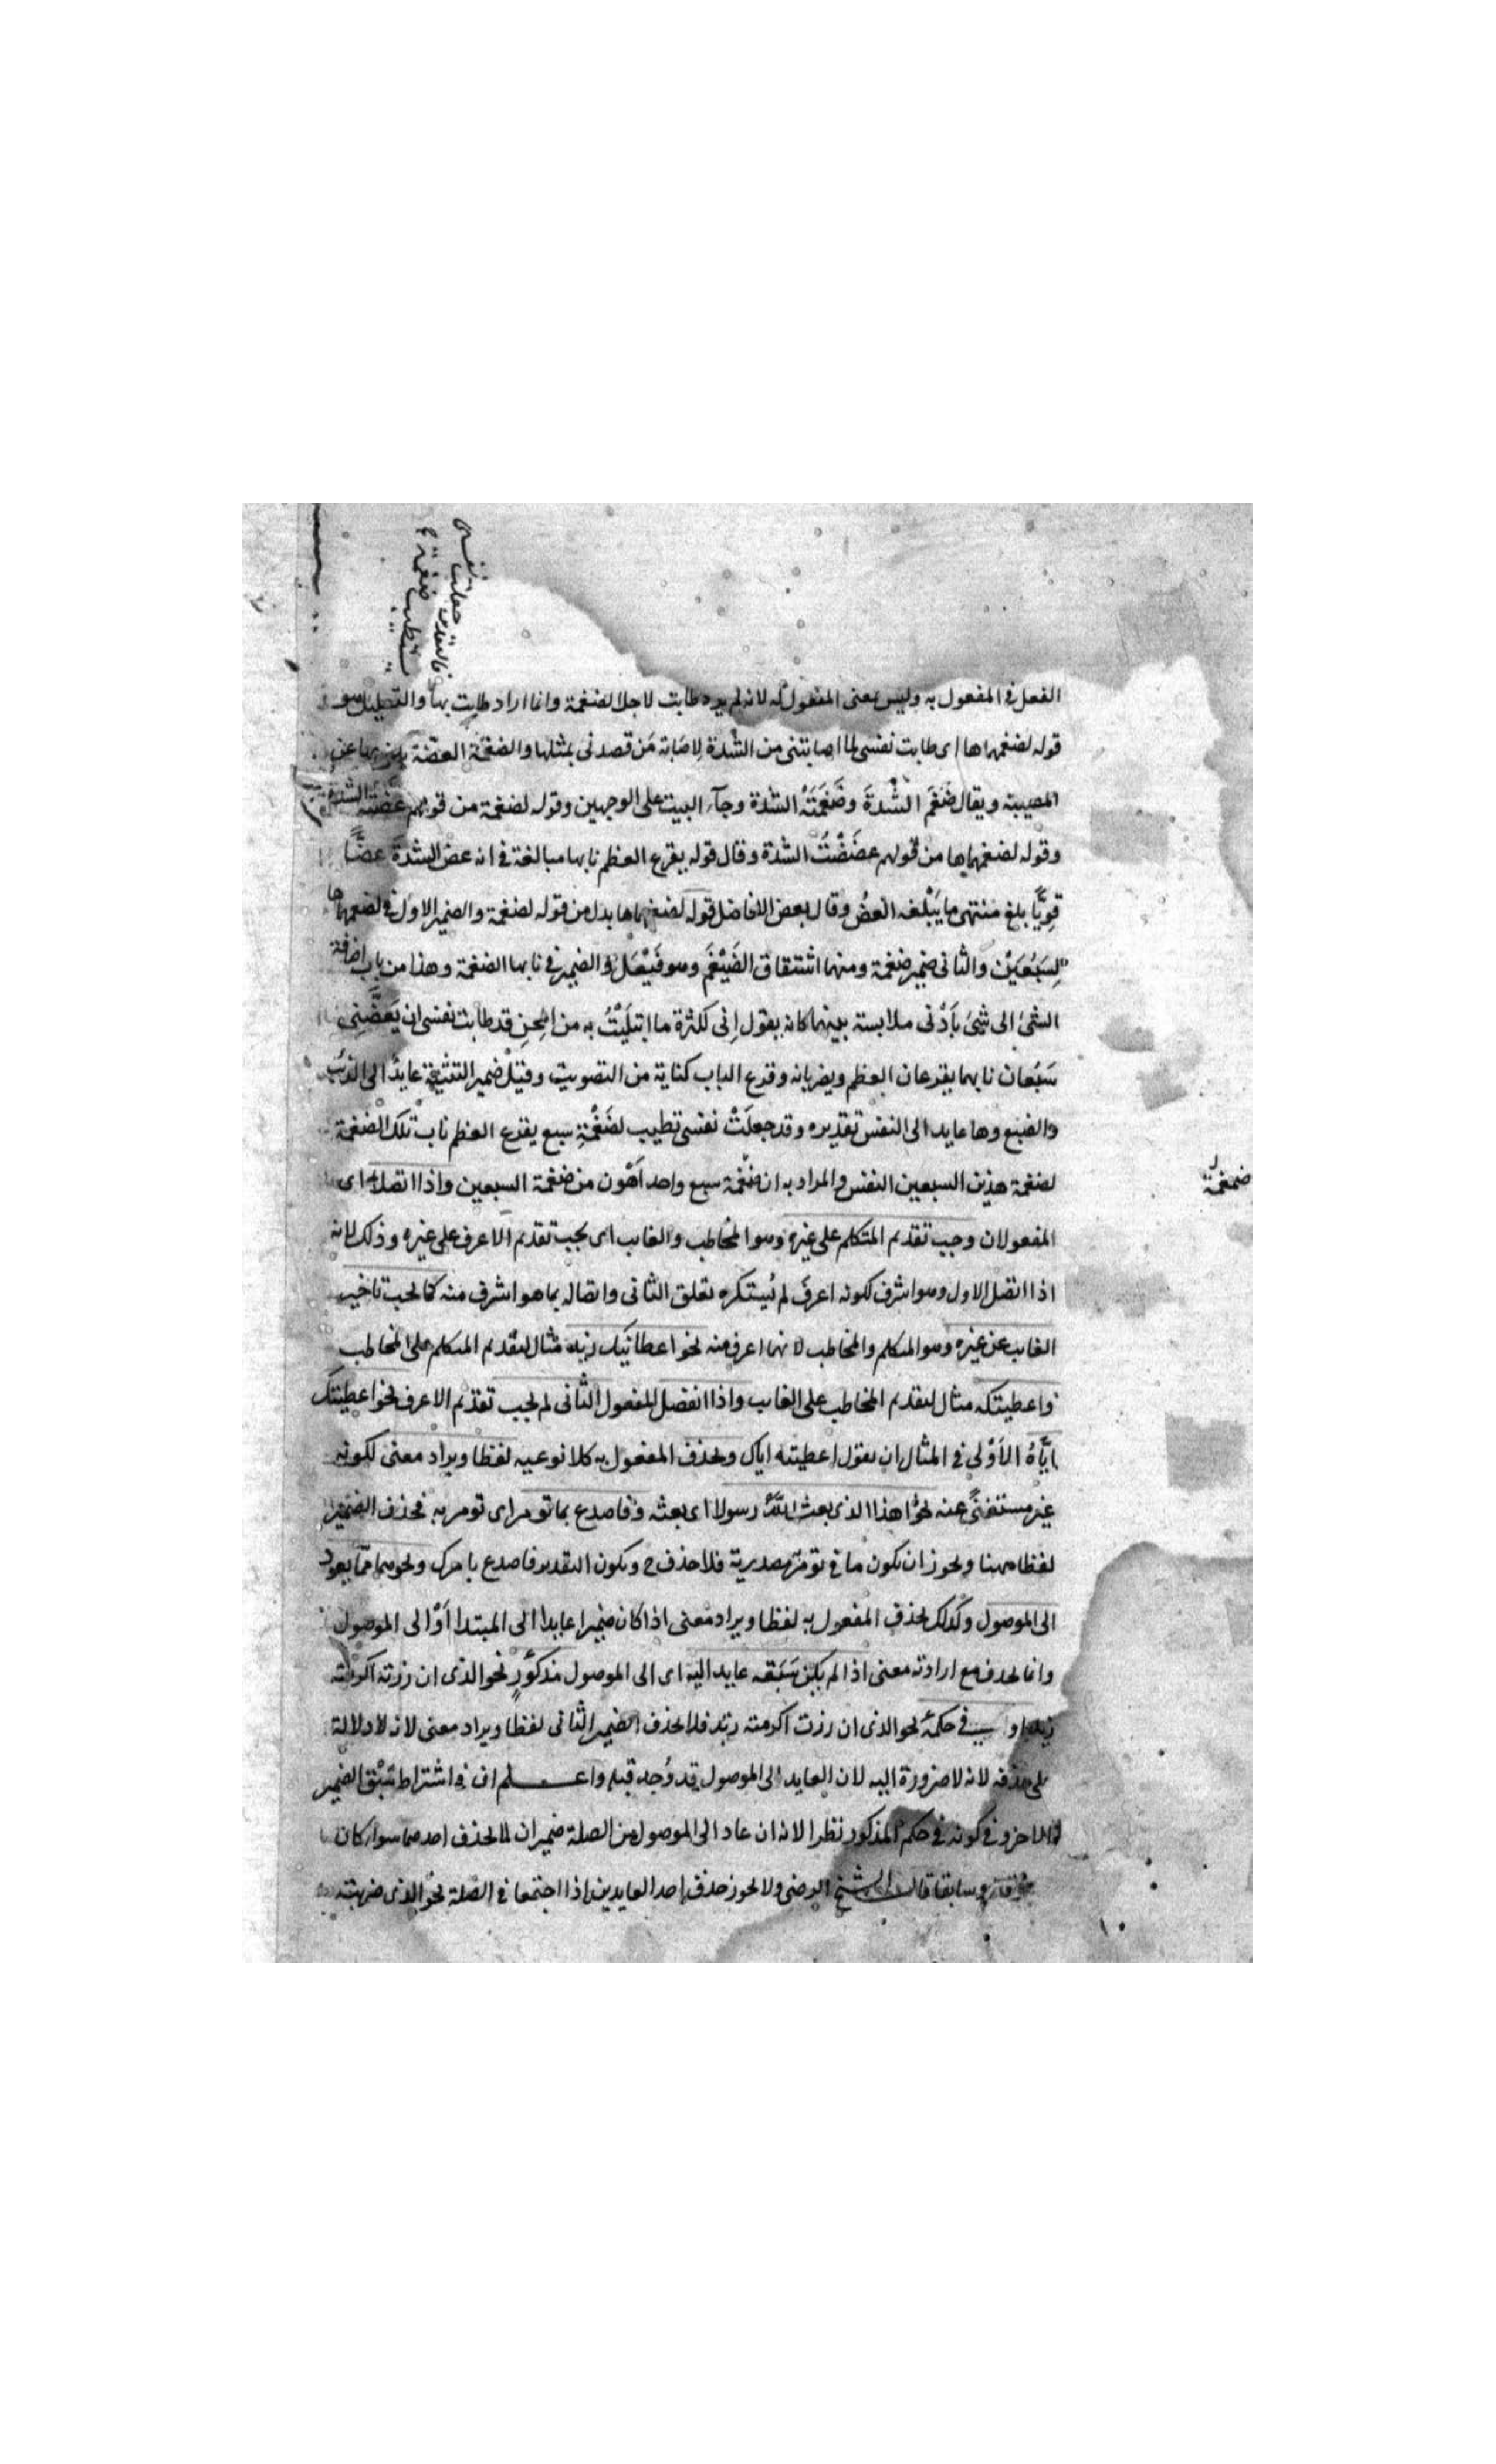 الفعل في المفعول به وليس بمعنى المفعول له لانه لم يرد طابت لاجل الضغمة وانما اراد طابت بها والتعليل هو
قوله لضغمهماها اى طابت نفسى لما اصابتنى من الشدة لاصابة من قصدنى بمثلها والضغمة العضة يكنى بها عن
المصيبة ويقال ضَغَم الشدةَ وضَغَمَتْهُ الشدة وجآء البيت على الوجهين وقوله لضغمة من قولهم عضته الشدة
وقوله لضغمهماها من قولهم عضَضْتُ الشدة وقال قوله يقرع العظم نابها مبالغة في انه عض الشدةَ عضًّا
قويًّا بلغ منتهى ما يَبْلُغه العضُ وقال بعض الافاضل قوله لضغمهماها بدل من قوله لضغمة والضمير الاول في لضغمهماها
لِسَبُعَيْن والثانى ضمير ضغمة ومنها اشتقاق الضَيْغَم وهو فَيْعَل والضمير في نابها الضغمة وهذا من باب اضافة
الشئ الى شئ بأدْنى ملابسة بينهما كانه يقول اِنى لكثرة ما ابتليْتُ به من المِحن قد طابت نفسى ان يَعَضَّنى
سَبُعان نابهما يقرعان العظم ويضربانه وقرع الباب كناية من التصويت وقيل ضمير التثنية عايد الى الذئب
والضبع وها عايد الى النفس تقديره وقد جعلَتْ نفسى تطيب لضَغْمةِ سبع يقرع العظم ناب تلك الضغمة
لضغمة هذين السبعين النفس والمراد به ان ضغمة سبع واحد اَهْون من ضغمة السبعين واذا اتصلا اى
المفعولان وجب تقديم المتكلم على غيره وهو المخاطب والغايب اى يجب تقديم الاعرف على غيره وذلك لانه
اذا اتصل الاول وهو اشرف لكونه اعرف لم يُستكره تعلق الثانى واتصاله بما هو اشرف منه كما يجب تاخير
الغايب عن غيره وهو المتكلم والمخاطب لانهما اعرف منه نحو اعطانيك زيد مثال لتقديم المتكلم على المخاطب
واعطيتكه مثال لتقديم المخاطب على الغايب واذا انفصل المفعول الثانى لم يجب تقديم الاعرف نحو اعطيتك
اِيَّاهُ الاَوْلى في المثال ان يقول اعطيته اياك ويحذف المفعول به كلا نوعيه لفظا ويراد معنى لكونه
غير مستغنىً عنه نحو اهذا الذى بعث اللّٰه رسولا اى بعثه وفاصدع بما تومر اى تومر به فحذف الضمير
لفظا ههنا ويجوز ان يكون ما في تومر مصدرية فلا حذف ح ويكون التقدير فاصدع بامرك ونحوهما مما يعود
الى الموصول وكذلك يحذف المفعول به لفظا ويراد معنى اذا كان ضميرا عايدا الى المبتدا اَوْ الى الموصول
وانما يحذف مع ارادته معنى اذا لم يكن سَبَقه عايد اليه اى الى الموصول مذكورٍ نحو الذى ان زرته اكرمته
زيد او في حكمه نحو الذى ان زرت اكرمته زيد فلا يحذف الضمير الثانى لفظا ويراد معنى لانه لا دلالة
على حذفه لانه لا ضرورة اليه لان العايد الى الموصول قد وُجد قبله واعلم ان في اشتراط سَبْق الضمير
الآخر و في كونه في حكم المذكور نظرا لانه ان عاد الى الموصول من الصلة ضميران لا يحذف احدهما سواء كان
وسابقا قال الشيخ الرضى ولا يجوز حذف احد العايدين اذا اجتمعا في الصلة نحو الذى ضربته
ضغمة
فالتقدير جعلت نفسى
تطيب ضغمة